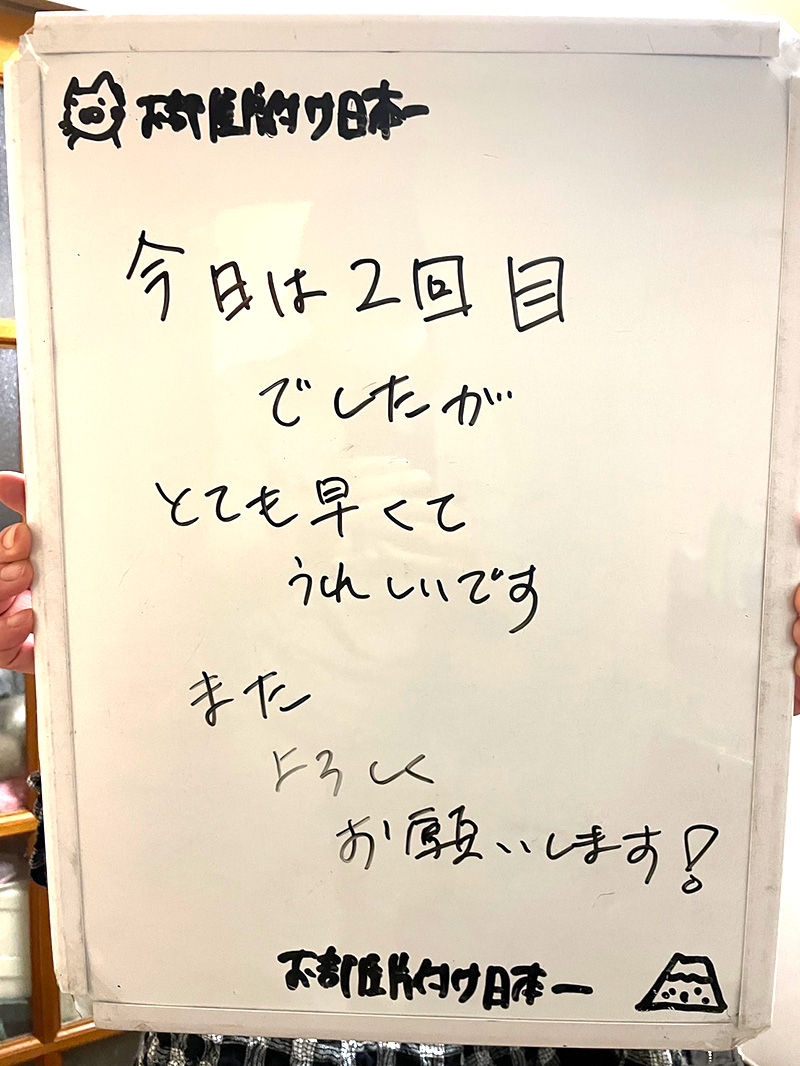 お部屋片付け日本一
今日は2回目
でしたが
とても早くて
うれしいです
また
よろしく
お願いします!
お部屋片付け日本一